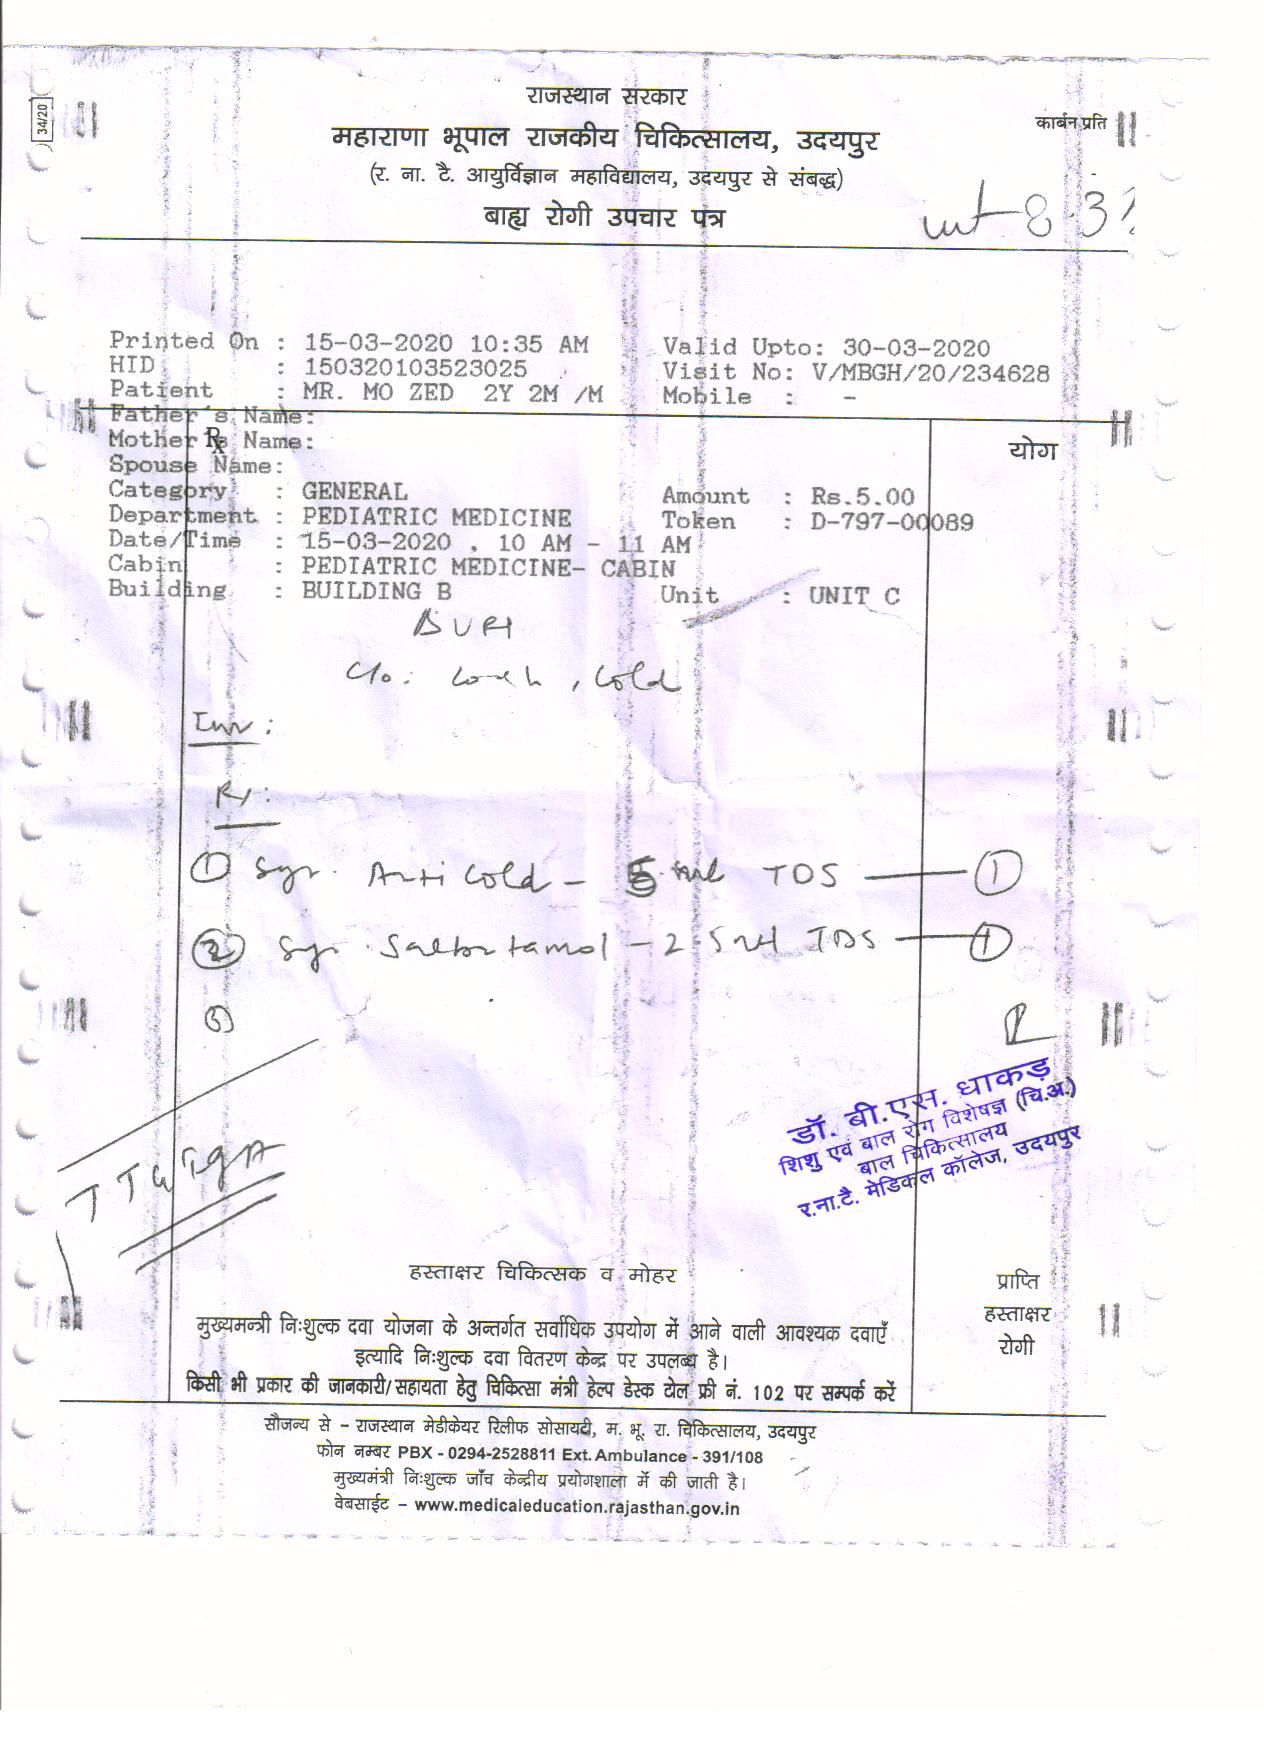 34/20
राजस्थान सरकार
कार्बन प्रति
महाराणा भूपाल राजकीय चिकित्सालय, उदयपुर
(र. ना. टै. आयुर्विज्ञान महाविद्यालय, उदयपुर से संबद्ध)
बाह्य रोगी उपचार पत्र
wt-8.3
Printed On : 15-03-2020 10:35 AM Valid Upto: 30-03-2020
HID : 150320103523025 Visit No: V/MBGH/20/234628
Patient : MR. MO ZED 2Y 2M /M Mobile : -
Father's Name:
Mother's Name:
Rx
योग
Spouse Name:
Category : GENERAL Amount : Rs.5.00
Department : PEDIATRIC MEDICINE Token : D-797-00089
Date/Time : 15-03-2020 , 10 AM - 11 AM
Cabin : PEDIATRIC MEDICINE- CABIN
Building : BUILDING B Unit : UNIT C
C/o: Cough, Cold
Inv:
Rx:
① Syr. Anti Cold - 5 ml TDS — ①
② Syr. Salbutamol - 2.5 ml TDS — ①
③
डॉ. बी.एस. धाकड़
शिशु एवं बाल रोग विशेषज्ञ (चि.अ.)
बाल चिकित्सालय
र.ना.टै. मेडिकल कॉलेज, उदयपुर
हस्ताक्षर चिकित्सक व मोहर
प्राप्ति
हस्ताक्षर
रोगी
मुख्यमन्त्री निःशुल्क दवा योजना के अन्तर्गत सर्वाधिक उपयोग में आने वाली आवश्यक दवाएँ
इत्यादि निःशुल्क दवा वितरण केन्द्र पर उपलब्ध है।
किसी भी प्रकार की जानकारी/सहायता हेतु चिकित्सा मंत्री हेल्प डेस्क टोल फ्री नं. 102 पर सम्पर्क करें
सौजन्य से – राजस्थान मेडीकेयर रिलीफ सोसायटी, म. भू. रा. चिकित्सालय, उदयपुर
फोन नम्बर PBX - 0294-2528811 Ext. Ambulance - 391/108
मुख्यमंत्री निःशुल्क जाँच केन्द्रीय प्रयोगशाला में की जाती है।
वेबसाईट – www.medicaleducation.rajasthan.gov.in